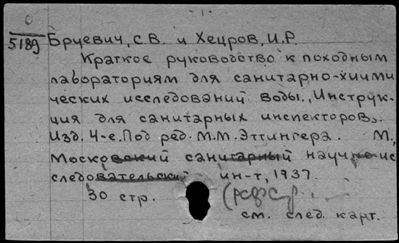 0
5189 Бруевич, С.В. и Хецров, И.Р.
Краткое руководство к походным
лабораториям для санитарно-хими
ческих исследований воды. „Инструк-
ция для санитарных инспекторов„.
Изд. 4-е. Под ред. М.М. Эттингера. М.,
Московский санитарный научно ис
следовательский ин-т, 1937.
30 стр. (РСФСР
см. след. карт.